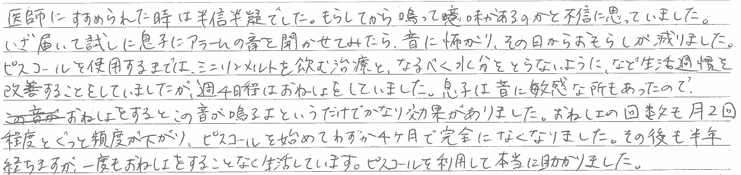 医師にすすめられた時は半信半疑でした。もらしてから鳴って意味があるのかと不信に思っていました。
いざ届いて試しに息子にアラームの音を聞かせてみたら、音に怖がり、その日からおもらしが減りました。
ピスコールを使用するまでは、ミニリンメルトを飲む治療と、なるべく水分をとらないように、など生活習慣を
改善することをしていましたが、週4日程はおねしょをしていました。息子は音に敏感な所もあったので、
おねしょをするとこの音が鳴るよというだけでかなり効果がありました。おねしょの回数も月2回
程度とぐっと頻度が下がり、ピスコールを始めてわずか4ヶ月で完全になくなりました。その後も半年
経ちますが、一度もおねしょをすることなく生活しています。ピスコールを利用して本当に助かりました。